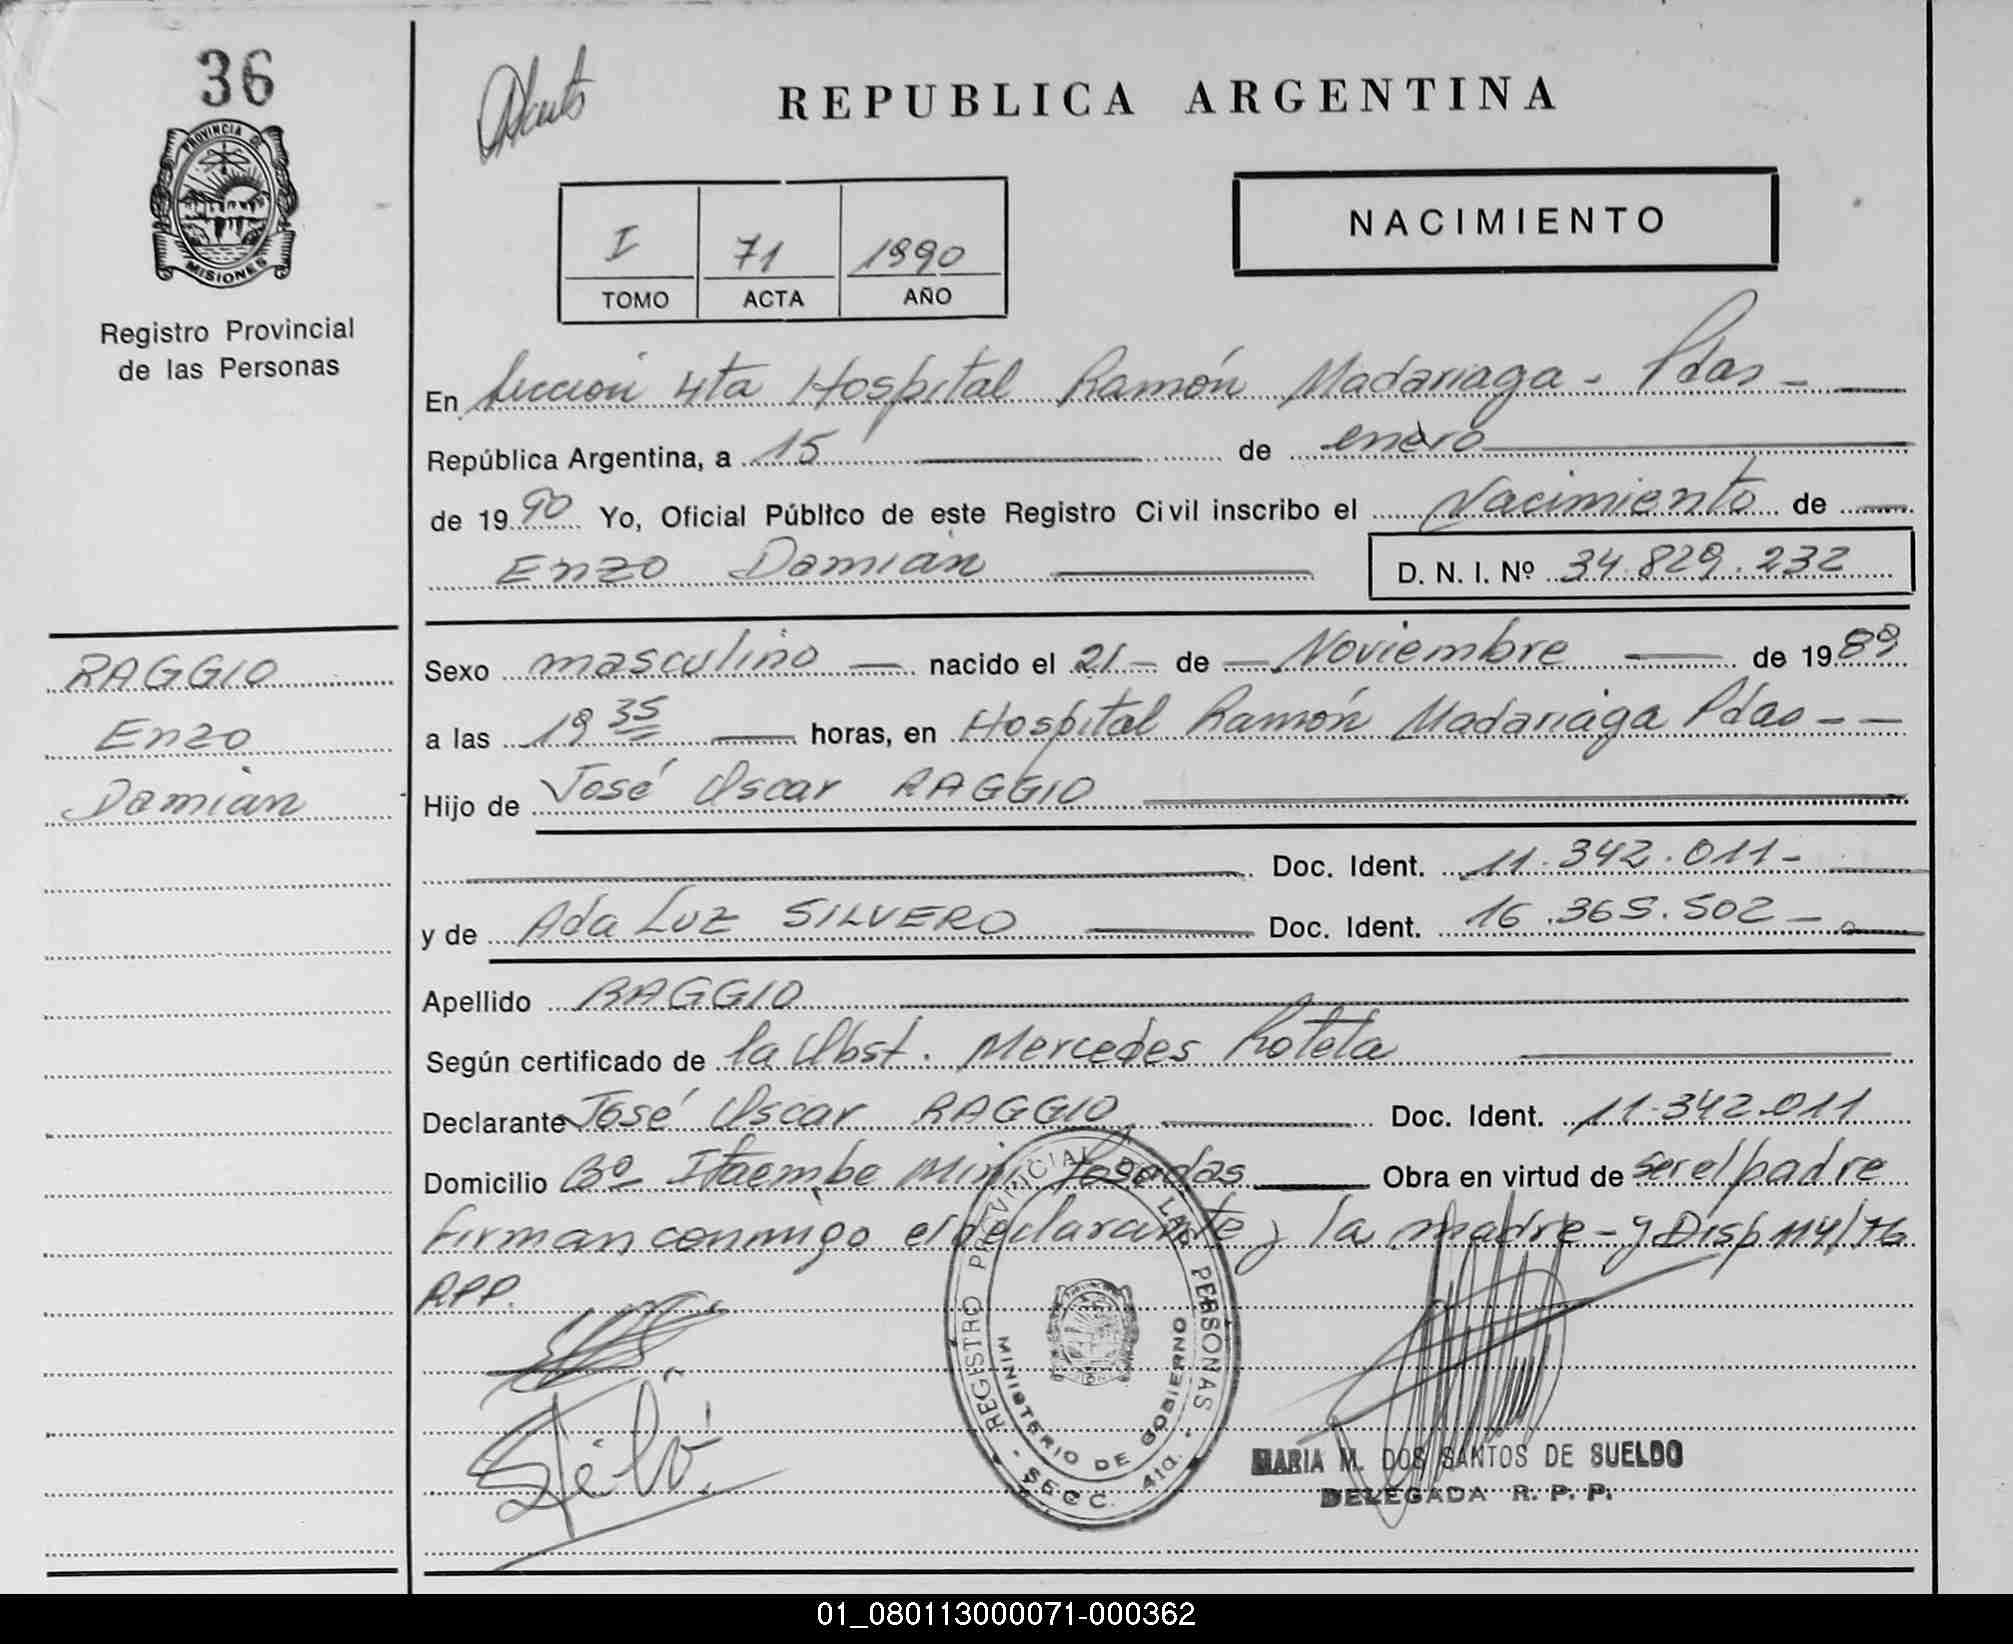 36
PROVINCIA DE
MISIONES
Registro Provincial
de las Personas
RAGGIO
Enzo
Damián
REPUBLICA ARGENTINA
NACIMIENTO
I 71 1990
TOMO ACTA AÑO
En Sección 4ta Hospital Ramón Madariaga - Pdas -
República Argentina, a 15 de enero
de 1990 Yo, Oficial Público de este Registro Civil inscribo el Nacimiento de
Enzo Damián D. N. I. Nº 34.829.232
Sexo masculino nacido el 21 - de Noviembre de 1989
a las 19 35 horas, en Hospital Ramón Madariaga Pdas - -
Hijo de José Oscar RAGGIO
Doc. Ident. 11.342.011 -
y de Ada Luz SILVERO Doc. Ident. 16.365.502 -
Apellido RAGGIO
Según certificado de la Obst. Mercedes Rotela
Declarante José Oscar RAGGIO Doc. Ident. 11.342.011
Domicilio Bº Itaembe Mini Posadas Obra en virtud de ser el padre
firman conmigo el declarante y la madre - y Disp 114/76
RPP.
REGISTRO PROVINCIAL DE LAS PERSONAS
MINISTERIO DE GOBIERNO
- SECC. 4ta. -
MARIA M. DOS SANTOS DE SUELDO
DELEGADA R. P. P.
01_080113000071-000362